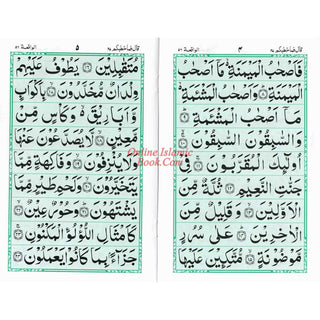 قال فما خطبكم ٢٧
٤
الواقعة ٥٦
فَاَصْحٰبُ الْمَيْمَنَةِ ۙ مَاۤ اَصْحٰبُ
الْمَيْمَنَةِ ۝٨ وَاَصْحٰبُ الْمَشْـَٔمَةِ ۙ
مَاۤ اَصْحٰبُ الْمَشْـَٔمَةِ ۝٩
وَالسّٰبِقُوْنَ السّٰبِقُوْنَ ۝١٠
اُولٰٓئِكَ الْمُقَرَّبُوْنَ ۝١١ فِيْ
جَنّٰتِ النَّعِيْمِ ۝١٢ ثُلَّةٌ مِّنَ
الْاَوَّلِيْنَ ۝١٣ وَقَلِيْلٌ مِّنَ
الْاٰخِرِيْنَ ۝١٤ عَلٰى سُرُرٍ
مَّوْضُوْنَةٍ ۝١٥ مُّتَّكِـِٕيْنَ عَلَيْهَا
قال فما خطبكم ٢٧
٥
الواقعة ٥٦
مُتَقٰبِلِيْنَ ۝١٦ يَطُوْفُ عَلَيْهِمْ
وِلْدَانٌ مُّخَلَّدُوْنَ ۝١٧ بِاَكْوَابٍ
وَّاَبَارِيْقَ ۙ وَكَاْسٍ مِّنْ
مَّعِيْنٍ ۝١٨ لَّا يُصَدَّعُوْنَ عَنْهَا
وَلَا يُنْزِفُوْنَ ۝١٩ وَفَاكِهَةٍ مِّمَّا
يَتَخَيَّرُوْنَ ۝٢٠ وَلَحْمِ طَيْرٍ مِّمَّا
يَشْتَهُوْنَ ۝٢١ وَحُوْرٌ عِيْنٌ ۝٢٢
كَاَمْثَالِ اللُّؤْلُؤِ الْمَكْنُوْنِ ۝٢٣
جَزَآءًۢ بِمَا كَانُوْا يَعْمَلُوْنَ ۝٢٤
Online Islamic
Book.Com